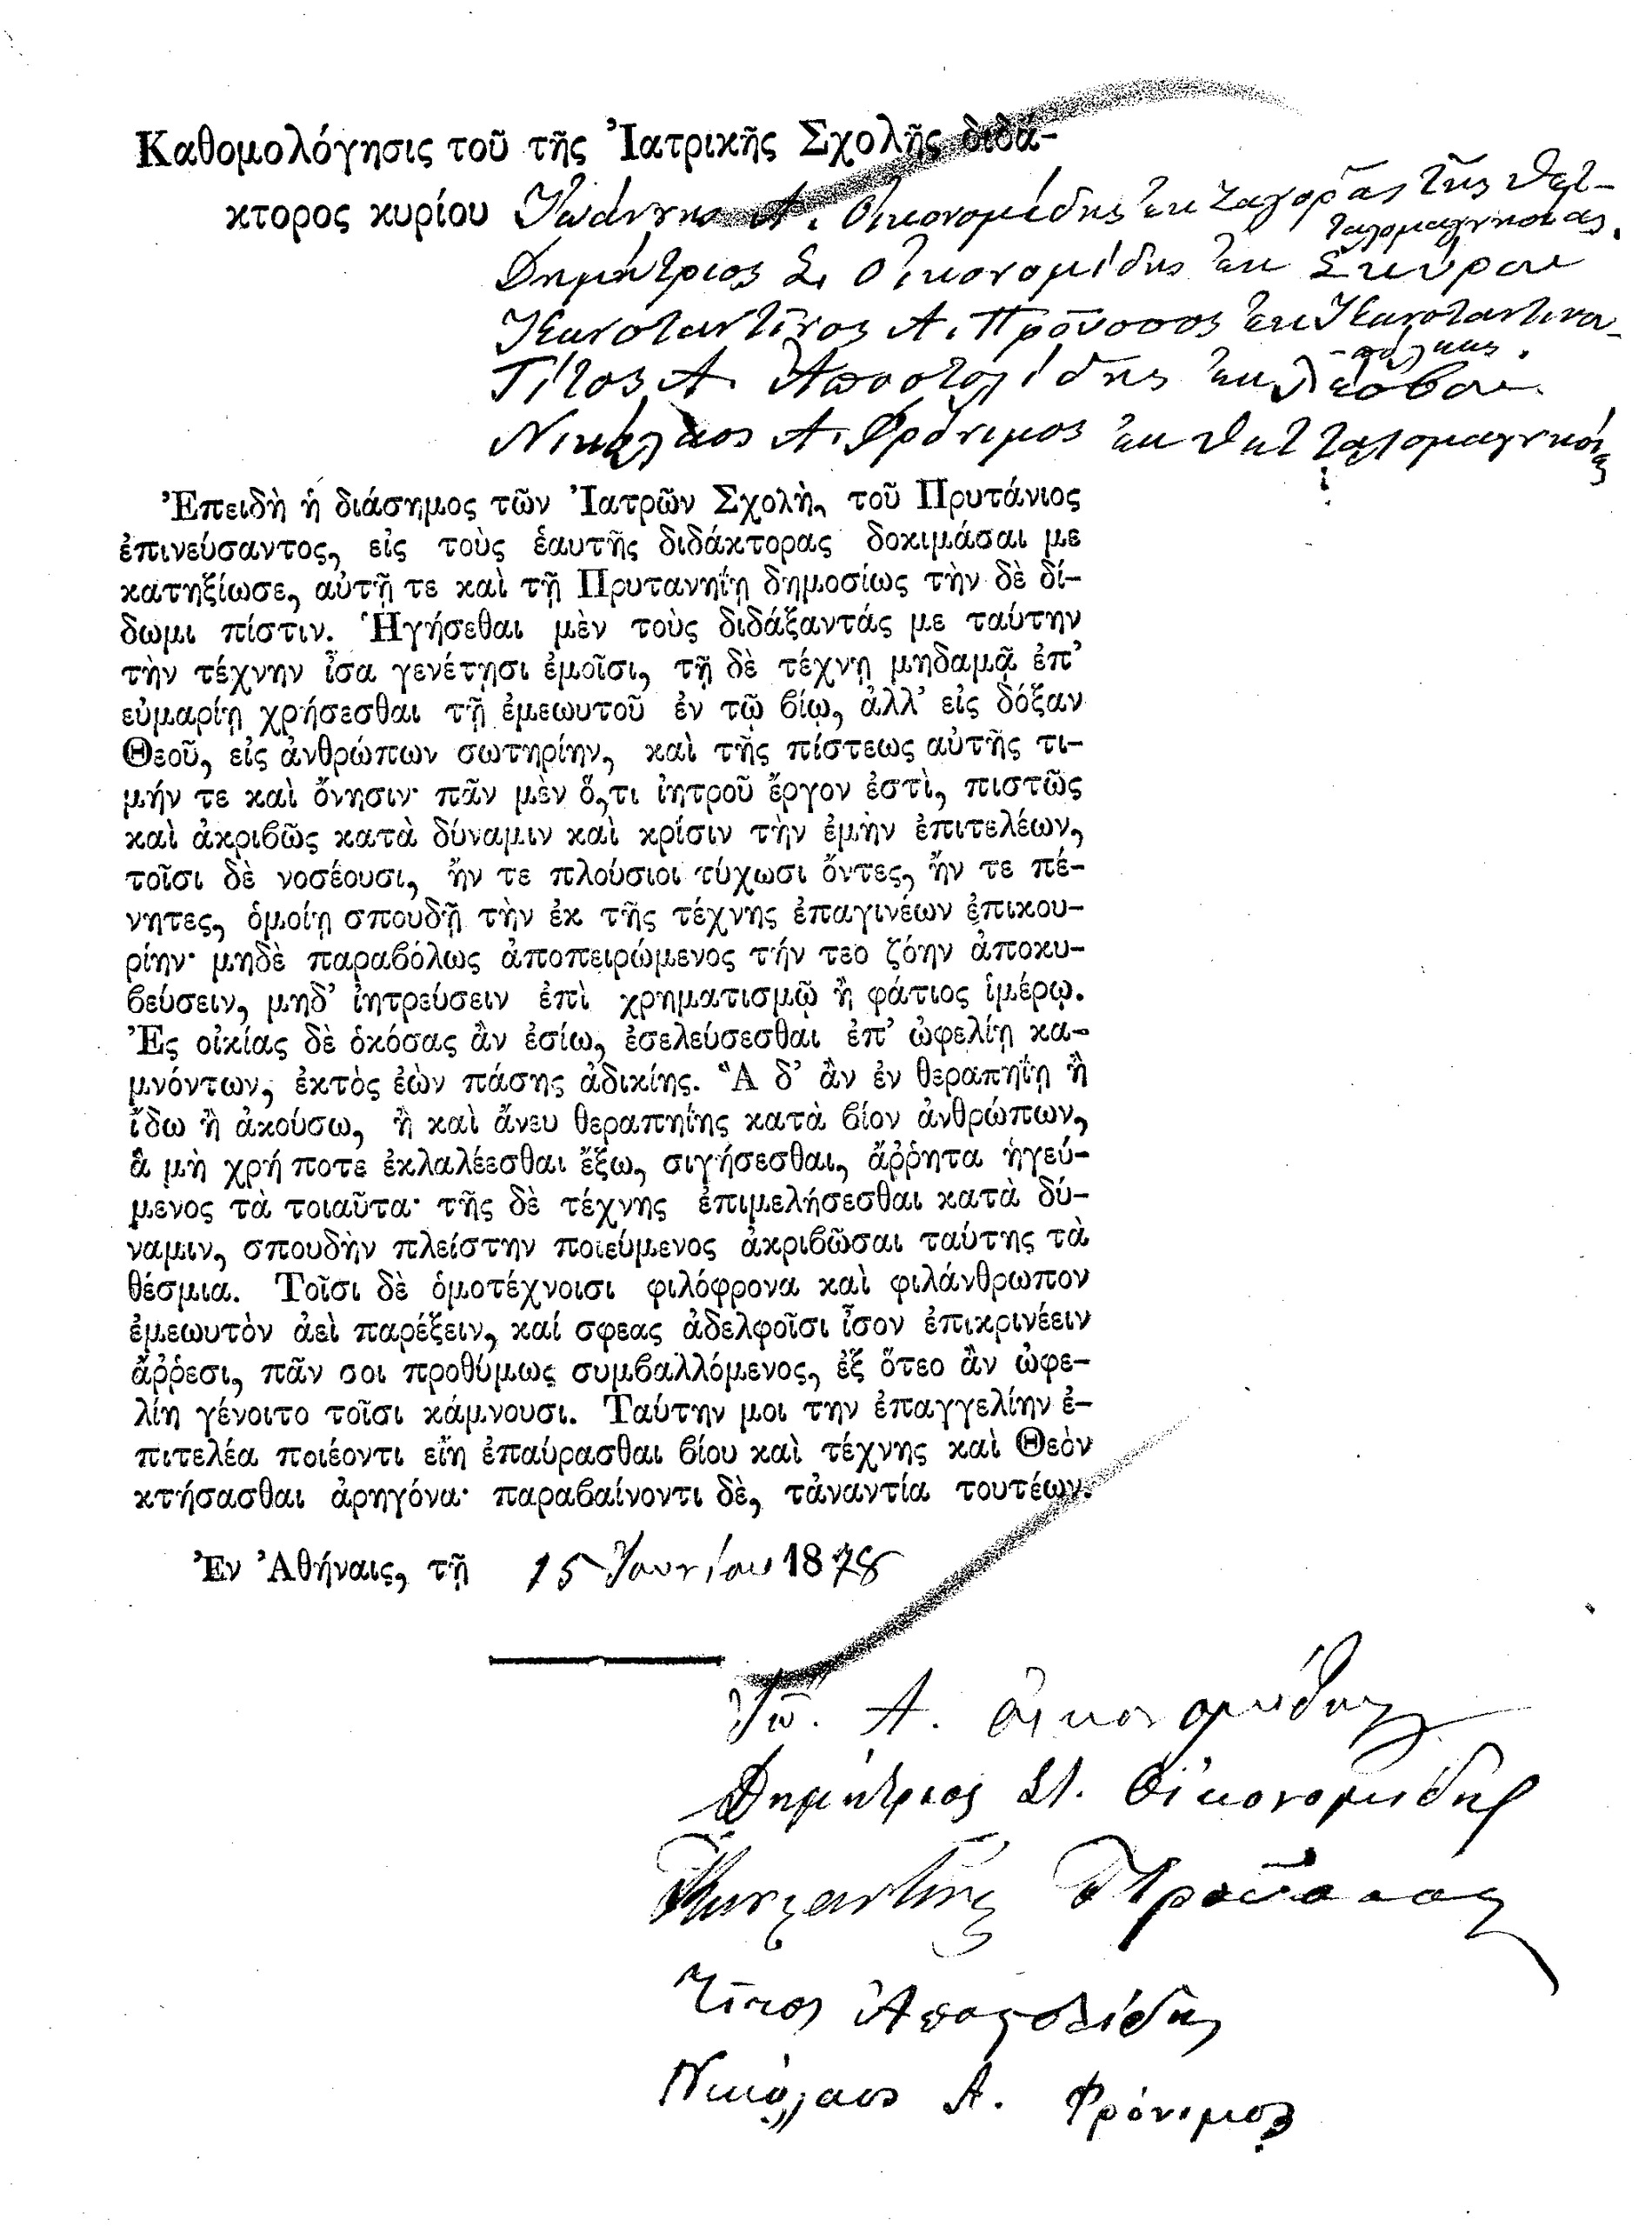 Καθομολόγησις τοῦ τῆς Ἰατρικῆς Σχολῆς διδά-
κτορος κυρίου Ἰωάννης Α. Οἰκονομίδης ἐκ Ζαγορᾶς τῆς Θετ-
ταλομαγνησίας.
Δημήτριος Σ. Οἰκονομίδης ἐκ Σκύρου
Κωνσταντῖνος Α. Προῦσσος ἐκ Κωνσταντινου-
-πόλεως.
Τίτος Α. Ἀποστολίδης ἐκ Λέσβου
Νικόλαος Α. Φρόνιμος ἐκ Θετταλομαγνησίας
Ἐπειδὴ ἡ διάσημος τῶν Ἰατρῶν Σχολὴ, τοῦ Πρυτάνιος
ἐπινεύσαντος, εἰς τοὺς ἑαυτῆς διδάκτορας δοκιμάσαι με
κατηξίωσε, αὐτῇ τε καὶ τῇ Πρυτανηΐῃ δημοσίως τὴν δὲ δί-
δωμι πίστιν. Ἡγήσεθαι μὲν τοὺς διδάξαντάς με ταύτην
τὴν τέχνην ἶσα γενέτῃσι ἐμοῖσι, τῇ δὲ τέχνῃ μηδαμᾷ ἐπ’
εὐμαρίῃ χρήσεσθαι τῇ ἐμεωυτοῦ ἐν τῷ βίῳ, ἀλλ’ εἰς δόξαν
Θεοῦ, εἰς ἀνθρώπων σωτηρίην, καὶ τῆς πίστεως αὐτῆς τι-
μήν τε καὶ ὄνησιν· πᾶν μὲν ὅ,τι ἰητροῦ ἔργον ἐστὶ, πιστῶς
καὶ ἀκριβῶς κατὰ δύναμιν καὶ κρίσιν τὴν ἐμὴν ἐπιτελέων,
τοῖσι δὲ νοσέουσι, ἤν τε πλούσιοι τύχωσι ὄντες, ἤν τε πέ-
νητες, ὁμοίῃ σπουδῇ τὴν ἐκ τῆς τέχνης ἐπαγινέων ἐπικου-
ρίην· μηδὲ παραβόλως ἀποπειρώμενος τήν τεο ζόην ἀποκυ-
βεύσειν, μηδ’ ἰητρεύσειν ἐπὶ χρηματισμῷ ἢ φάτιος ἱμέρῳ.
Ἐς οἰκίας δὲ ὁκόσας ἂν ἐσίω, ἐσελεύσεσθαι ἐπ’ ὠφελίῃ κα-
μνόντων, ἐκτὸς ἐὼν πάσης ἀδικίης. Ἃ δ’ ἂν ἐν θεραπηΐῃ ἢ
ἴδω ἢ ἀκούσω, ἢ καὶ ἄνευ θεραπηΐης κατὰ βίον ἀνθρώπων,
ἃ μὴ χρή ποτε ἐκλαλέεσθαι ἔξω, σιγήσεσθαι, ἄῤῥητα ἡγεύ-
μενος τὰ τοιαῦτα· τῆς δὲ τέχνης ἐπιμελήσεσθαι κατὰ δύ-
ναμιν, σπουδὴν πλείστην ποιεύμενος ἀκριβῶσαι ταύτης τὰ
θέσμια. Τοῖσι δὲ ὁμοτέχνοισι φιλόφρονα καὶ φιλάνθρωπον
ἐμεωυτὸν ἀεὶ παρέξειν, καί σφεας ἀδελφοῖσι ἶσον ἐπικρινέειν
ἄῤῥεσι, πᾶν σοι προθύμως συμβαλλόμενος, ἐξ ὅτεο ἂν ὠφε-
λίη γένοιτο τοῖσι κάμνουσι. Ταύτην μοι την ἐπαγγελίην ἐ-
πιτελέα ποιέοντι εἴη ἐπαύρασθαι βίου καὶ τέχνης καὶ Θεὸν
κτήσασθαι ἀρηγόνα· παραβαίνοντι δὲ, τἀναντία τουτέων.
Ἐν Ἀθήναις, τῇ 15 Ἰουνίου 1878
Ἰω. Α. Οἰκονομίδης
Δημήτριος Στ. Οἰκονομίδης
Κωνσταντῖνος Προῦσσος
Τίτος Ἀποστολίδης
Νικόλαος Α. Φρόνιμος